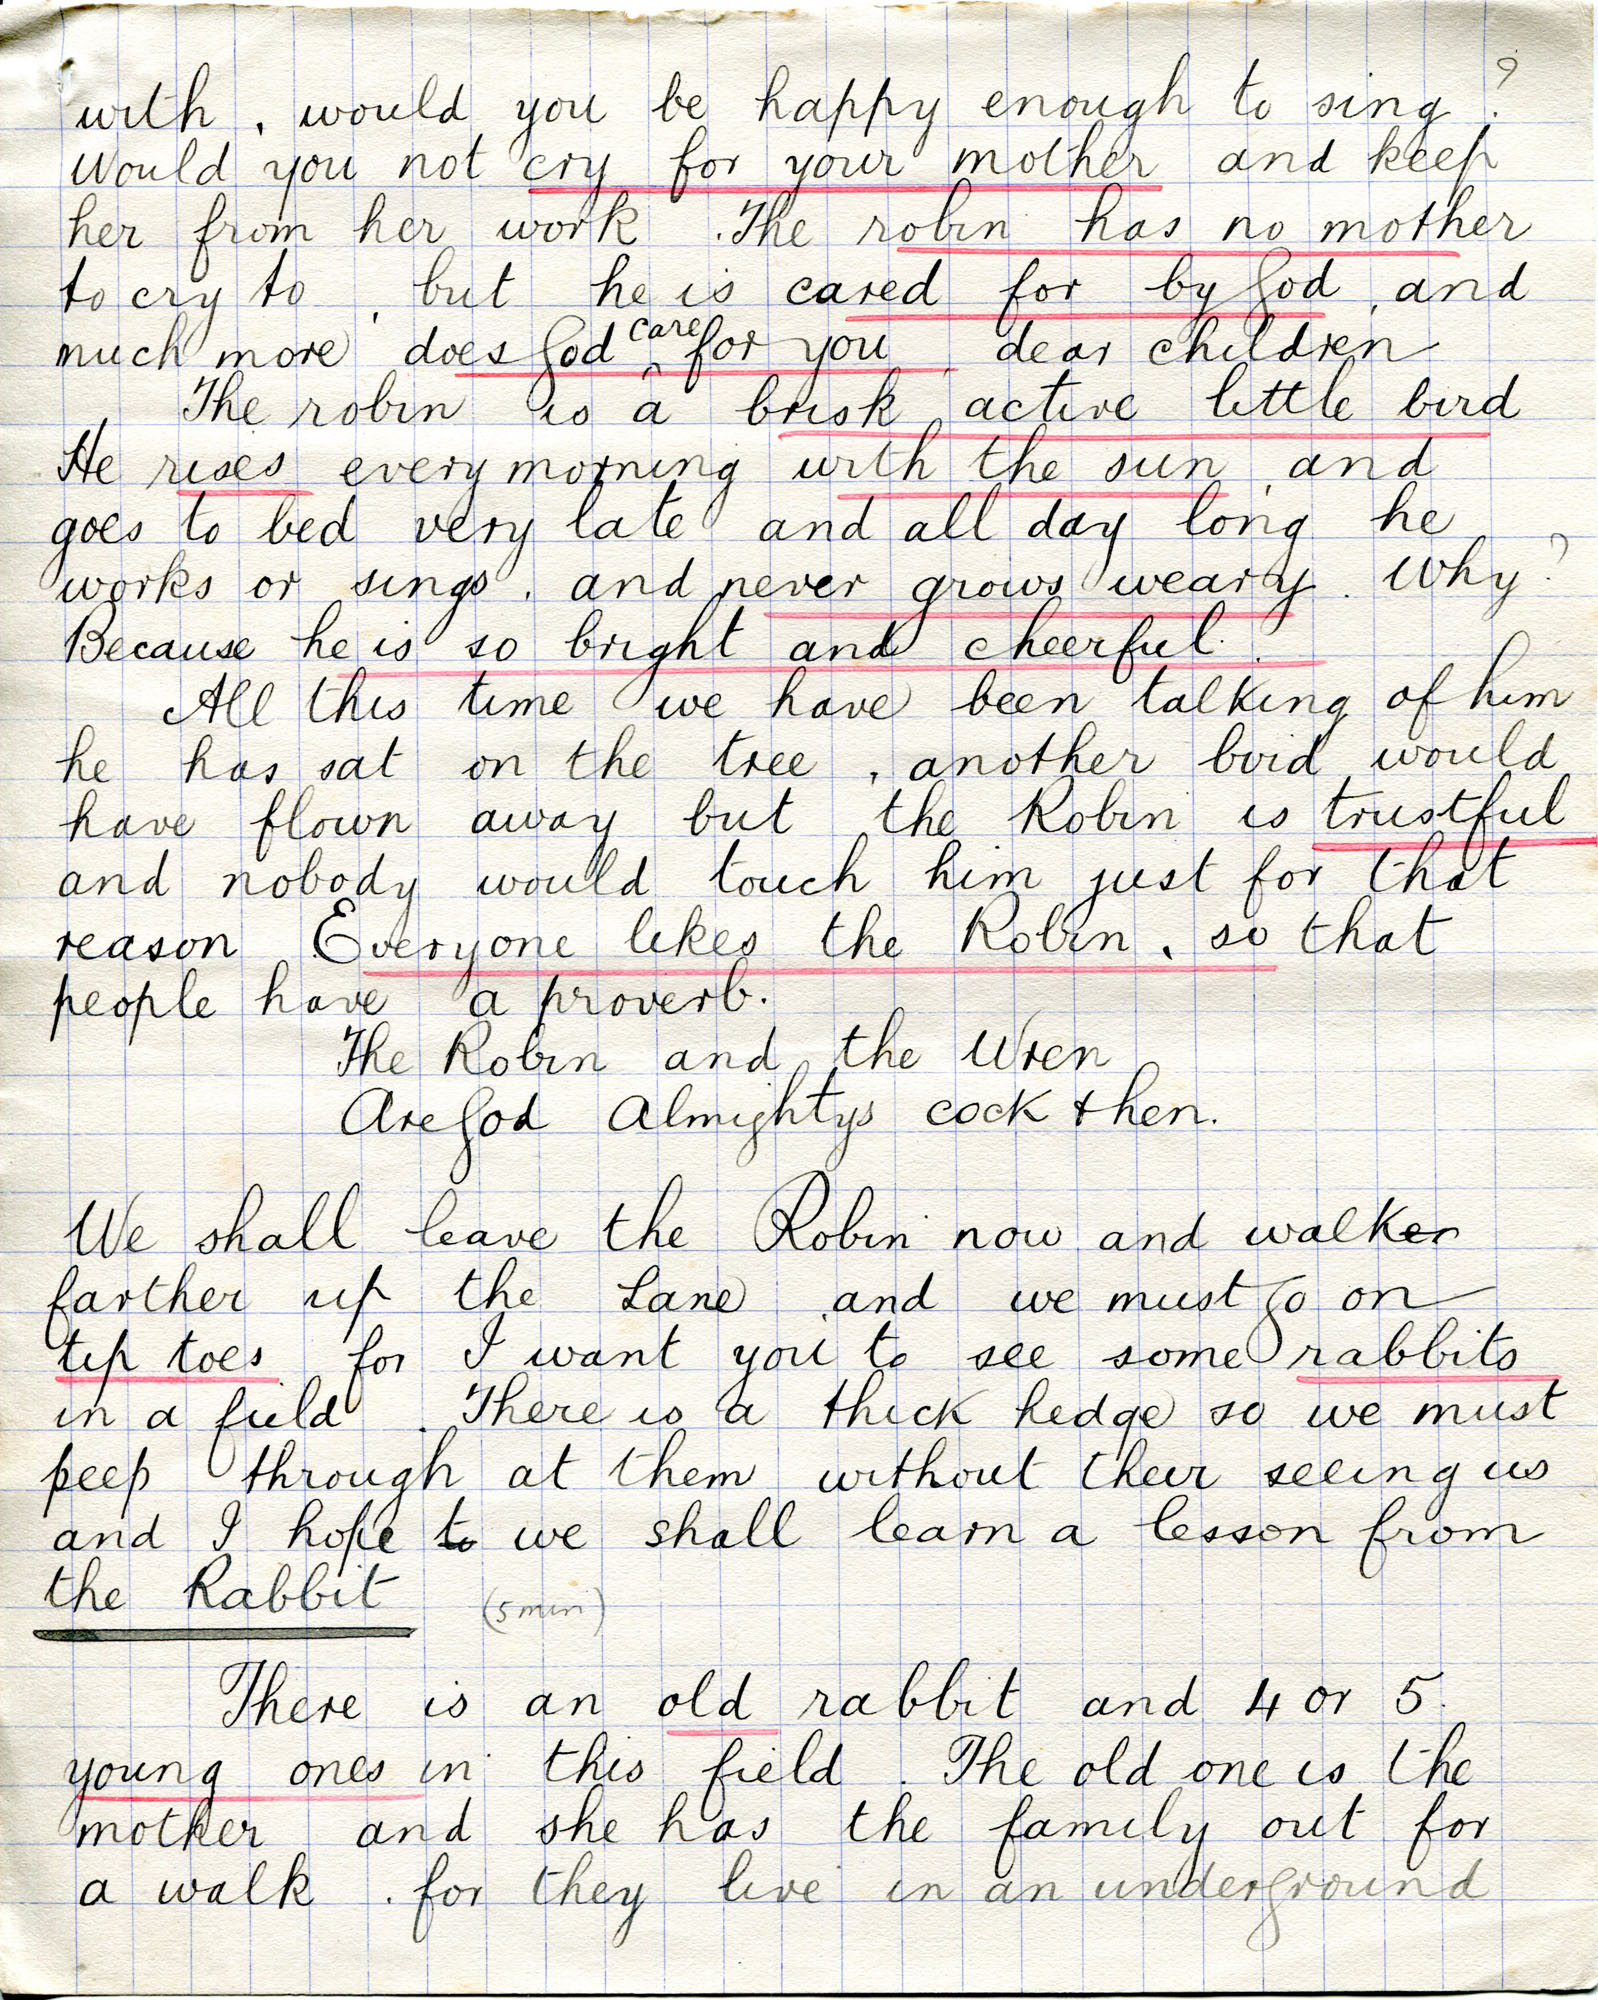 with, would you be happy enough to sing?
Would you not cry for your mother and keep
her from her work. The robin has no mother
to cry to, but he is cared for by God, and
much more does God care for you, dear children
The robin is a brisk active little bird
He rises every morning with the sun, and
goes to bed very late and all day long he
works or sings, and never grows weary. Why?
Because he is so bright and cheerful.
All this time we have been talking of him
he has sat on the tree, another bird would
have flown away but the Robin is trustful
and nobody would touch him just for that
reason Everyone likes the Robin, so that
people have a proverb.
The Robin and the Wren
Are God Almightys cock & hen.
We shall leave the Robin now and walker
farther up the Lane and we must go on
tip toes for I want you to see some rabbits
in a field. There is a thick hedge so we must
peep through at them without their seeing us
and I hope to we shall learn a lesson from
the Rabbit (5 min)
There is an old rabbit and 4 or 5
young ones in this field. The old one is the
mother and she has the family out for
a walk. for they live in an underground